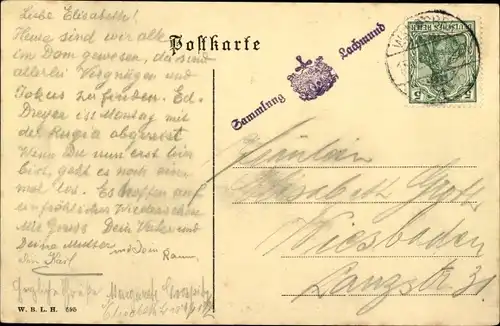 Liebe Elisabeth!
Heute sind wir alle
im Dom gewesen, da sind
allerlei Vergnügen und
zu finden. Ed.
Dreyer ist Montag mit
der Rugia abgereist
Wenn Du nun erst hier
bist, geht es noch ein
mal los. Es hoffen auf
ein fröhliches Wiedersehen
Mit Gruss Dein Vater und
Deine Mutter
und dem
Karl
Grüße Margarete
Elisabeth
W. B. L. H. 595
Postkarte
Sammlung Lachmund
DEUTSCHES REICH
5 5
Fräulein
Elisabeth
Wiesbaden
Lanzstr. 31